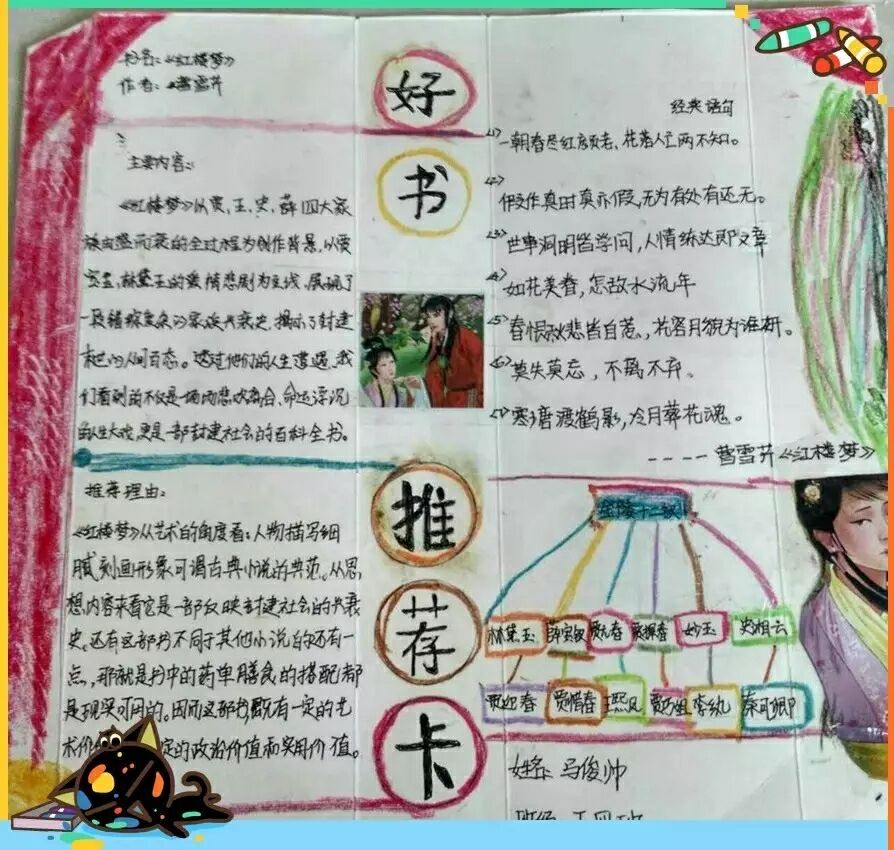 书名：《红楼梦》
作者：曹雪芹
主要内容：
《红楼梦》以贾、王、史、薛四大家
族由盛而衰的全过程为创作背景，以贾
宝玉、林黛玉的爱情悲剧为主线，展现了
一段错综复杂的家族兴衰史，揭示了封建
社会的人间百态。透过他们的人生遭遇，我
们看到的不仅是一场场悲欢离合、命运浮沉
的人生大戏，更是一部封建社会的百科全书。
推荐理由：
《红楼梦》从艺术的角度看：人物描写细
腻，刻画形象可谓古典小说的典范。从思
想内容来看它是一部反映封建社会的兴衰
史。还有这部书不同于其他小说的还有一
点，那就是书中的药单膳食的搭配都
是现实可用的。因而这部书既有一定的艺
术价 定的政治价值和实用价值。
好
书
推
荐
卡
经典语句
<1>一朝春尽红颜老、花落人亡两不知。
<2>假作真时真亦假，无为有处有还无。
<3>世事洞明皆学问，人情练达即文章
<4>如花美眷，怎敌水流年
<5>春恨秋悲皆自惹，花容月貌为谁妍。
<6>莫失莫忘，不离不弃。
<7>寒塘渡鹤影，冷月葬花魂。
----曹雪芹《红楼梦》
金陵十二钗
林黛玉 薛宝钗 贾元春 贾探春 妙玉 史湘云
贾迎春 贾惜春 王熙凤 贾巧姐 李纨 秦可卿
姓名：马俊帅